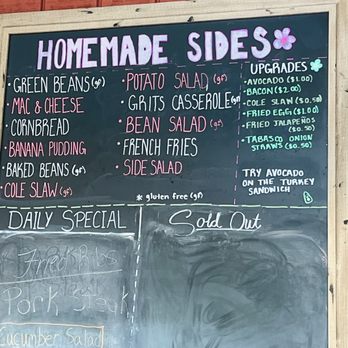 HOMEMADE SIDES
• GREEN BEANS (gf)
• MAC & CHEESE
• CORNBREAD
• BANANA PUDDING
• BAKED BEANS (gf)
• COLE SLAW (gf)
• POTATO SALAD (gf)
• GRITS CASSEROLE (gf)
• BEAN SALAD (gf)
• FRENCH FRIES
• SIDE SALAD
* gluten free (gf)
UPGRADES
• AVOCADO ($1.00)
• BACON ($2.00)
• COLE SLAW ($0.50)
• FRIED EGG ($1.00)
• FRIED JALAPEÑOS
($0.50)
• TABASCO ONION
STRAWS ($0.50)
TRY AVOCADO
ON THE TURKEY
SANDWICH
DAILY SPECIAL
Pork
Cucumber Salad
Sold Out